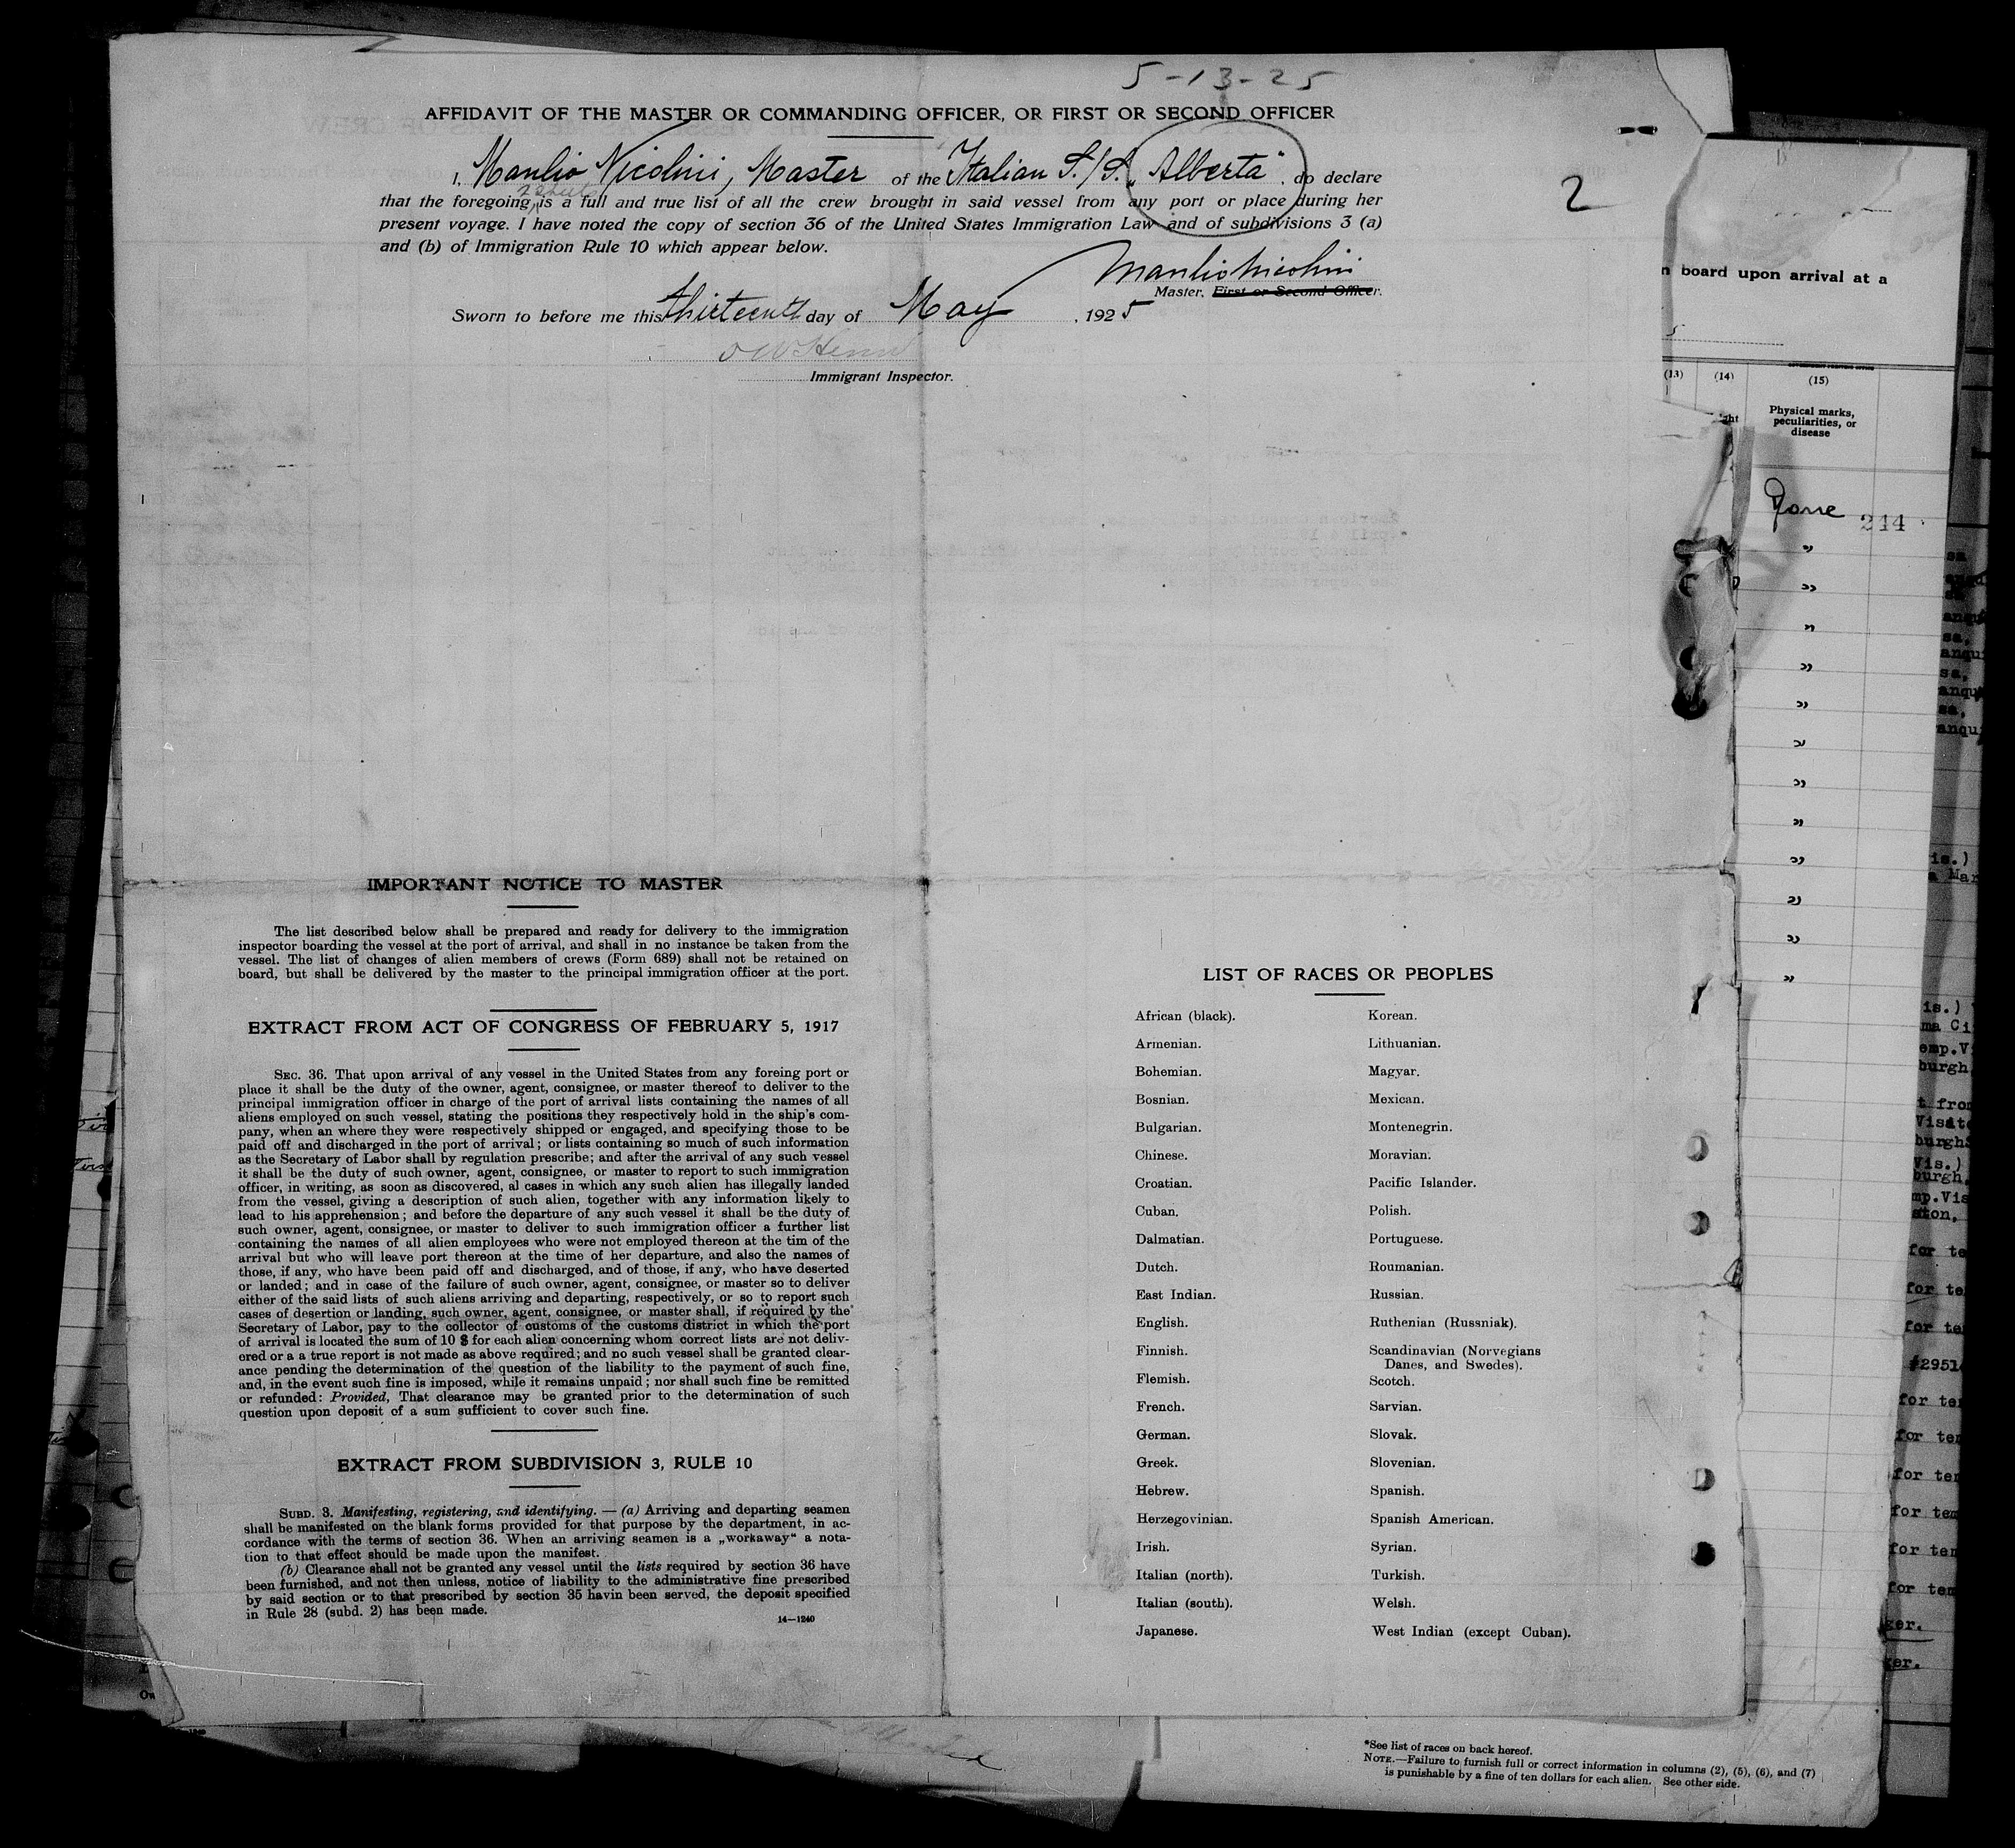 5-13-25
AFFIDAVIT OF THE MASTER OR COMMANDING OFFICER, OR FIRST OR SECOND OFFICER
I, Manlio Nicolini, Master of the Italian S./S. „Alberta" , do declare
2 sheets
that the foregoing, is a full and true list of all the crew brought in said vessel from any port or place during her
present voyage. I have noted the copy of section 36 of the United States Immigration Law and of subdivisions 3 (a)
and (b) of Immigration Rule 10 which appear below.
2
Manlio Nicolini
Master, First or Second Officer.
Sworn to before me this thirteenth day of May , 1925
Immigrant Inspector.
IMPORTANT NOTICE TO MASTER
The list described below shall be prepared and ready for delivery to the immigration
inspector boarding the vessel at the port of arrival, and shall in no instance be taken from the
vessel. The list of changes of alien members of crews (Form 689) shall not be retained on
board, but shall be delivered by the master to the principal immigration officer at the port.
EXTRACT FROM ACT OF CONGRESS OF FEBRUARY 5, 1917
SEC. 36. That upon arrival of any vessel in the United States from any foreing port or
place it shall be the duty of the owner, agent, consignee, or master thereof to deliver to the
principal immigration officer in charge of the port of arrival lists containing the names of all
aliens employed on such vessel, stating the positions they respectively hold in the ship's com-
pany, when an where they were respectively shipped or engaged, and specifying those to be
paid off and discharged in the port of arrival; or lists containing so much of such information
as the Secretary of Labor shall by regulation prescribe; and after the arrival of any such vessel
it shall be the duty of such owner, agent, consignee, or master to report to such immigration
officer, in writing, as soon as discovered, al cases in which any such alien has illegally landed
from the vessel, giving a description of such alien, together with any information likely to
lead to his apprehension; and before the departure of any such vessel it shall be the duty of
such owner, agent, consignee, or master to deliver to such immigration officer a further list
containing the names of all alien employees who were not employed thereon at the tim of the
arrival but who will leave port thereon at the time of her departure, and also the names of
those, if any, who have been paid off and discharged, and of those, if any, who have deserted
or landed; and in case of the failure of such owner, agent, consignee, or master so to deliver
either of the said lists of such aliens arriving and departing, respectively, or so to report such
cases of desertion or landing, such owner, agent, consignee, or master shall, if required by the
Secretary of Labor, pay to the collector of customs of the customs district in which the port
of arrival is located the sum of 10 $ for each alien concerning whom correct lists are not deliv-
ered or a a true report is not made as above required; and no such vessel shall be granted clear-
ance pending the determination of the question of the liability to the payment of such fine,
and, in the event such fine is imposed, while it remains unpaid; nor shall such fine be remitted
or refunded: Provided, That clearance may be granted prior to the determination of such
question upon deposit of a sum sufficient to cover such fine.
EXTRACT FROM SUBDIVISION 3, RULE 10
SUBD. 3. Manifesting, registering, and identifying. — (a) Arriving and departing seamen
shall be manifested on the blank forms provided for that purpose by the department, in ac-
cordance with the terms of section 36. When an arriving seamen is a „workaway“ a nota-
tion to that effect should be made upon the manifest.
(b) Clearance shall not be granted any vessel until the lists required by section 36 have
been furnished, and not then unless, notice of liability to the administrative fine prescribed
by said section or to that prescribed by section 35 havin been served, the deposit specified
in Rule 28 (subd. 2) has been made.
14—1240
LIST OF RACES OR PEOPLES
African (black). Korean.
Armenian. Lithuanian.
Bohemian. Magyar.
Bosnian. Mexican.
Bulgarian. Montenegrin.
Chinese. Moravian.
Croatian. Pacific Islander.
Cuban. Polish.
Dalmatian. Portuguese.
Dutch. Roumanian.
East Indian. Russian.
English. Ruthenian (Russniak).
Finnish. Scandinavian (Norvegians
Danes, and Swedes).
Flemish. Scotch.
French. Sarvian.
German. Slovak.
Greek. Slovenian.
Hebrew. Spanish.
Herzegovinian. Spanish American.
Irish. Syrian.
Italian (north). Turkish.
Italian (south). Welsh.
Japanese. West Indian (except Cuban).
n board upon arrival at a
(13) (14) (15)
Physical marks,
peculiarities, or
disease
244
*See list of races on back hereof.
NOTE.—Failure to furnish full or correct information in columns (2), (5), (6), and (7)
is punishable by a fine of ten dollars for each alien. See other side.